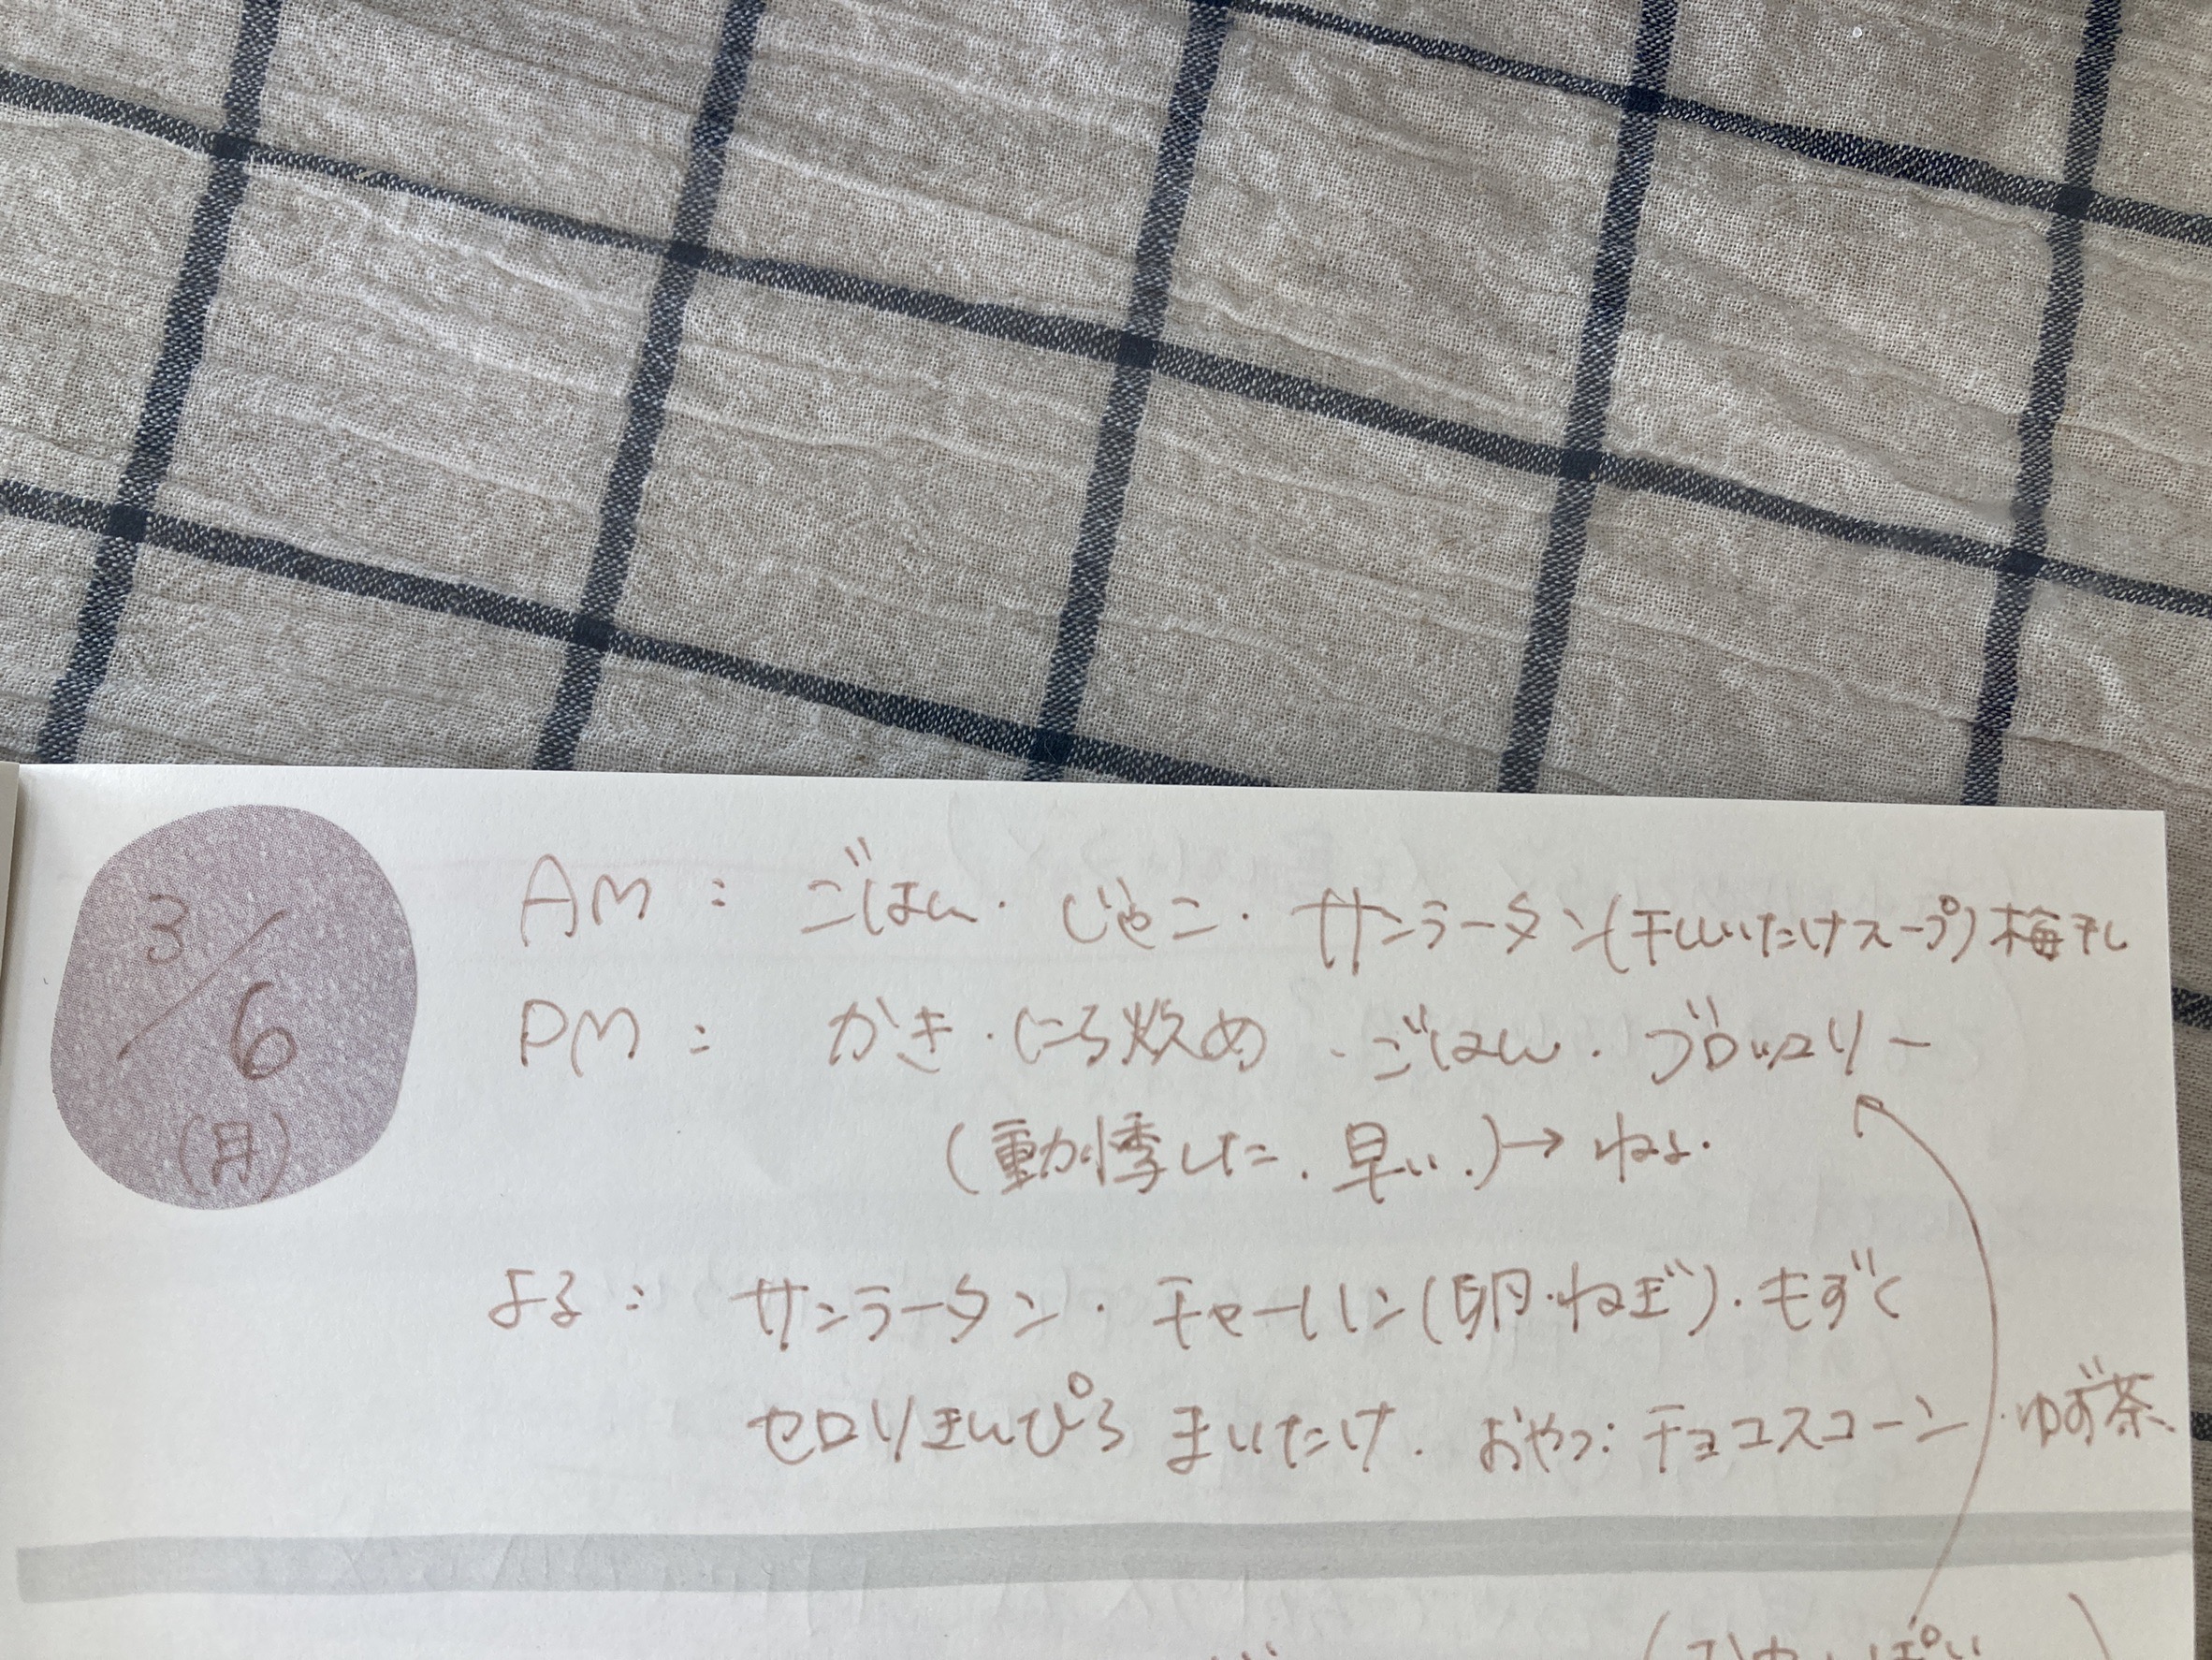 3/6
(月)
AM : ごはん・じゃこ・サンラータン(干しいたけスープ)梅干し
PM : かき・にら炒め・ごはん・ブロッコリー
(動悸した.早い.)→ねよ.
よる : サンラータン・チャーハン(卵・ねぎ)・もずく
セロリきんぴら まいたけ. おやつ:チョコスコーン・ゆず茶、